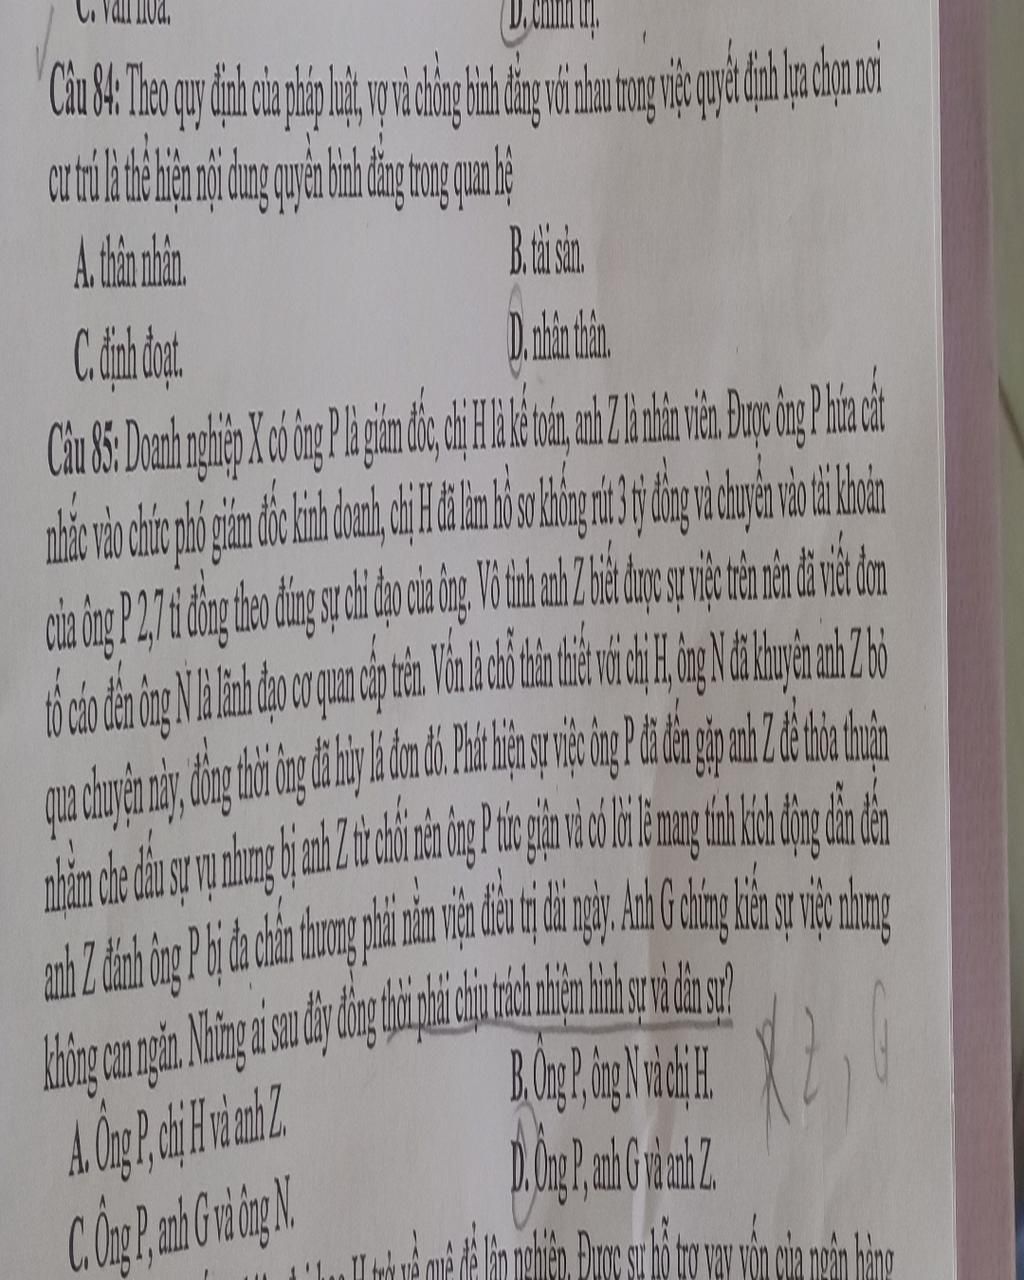 C. văn hóa.
D. chính trị.
Câu 84: Theo quy định của pháp luật, vợ và chồng bình đẳng với nhau trong việc quyết định lựa chọn nơi
cư trú là thể hiện nội dung quyền bình đẳng trong quan hệ
A. thân nhân.
B. tài sản.
C. định đoạt.
D. nhân thân.
Câu 85: Doanh nghiệp X có ông P là giám đốc, chị H là kế toán, anh Z là nhân viên. Được ông P hứa cất
nhắc vào chức phó giám đốc kinh doanh, chị H đã làm hồ sơ khống rút 3 tỷ đồng và chuyển vào tài khoản
của ông P 2,7 tỉ đồng theo đúng sự chỉ đạo của ông. Vô tình anh Z biết được sự việc trên nên đã viết đơn
tố cáo đến ông N là lãnh đạo cơ quan cấp trên. Vốn là chỗ thân thiết với chị H, ông N đã khuyên anh Z bỏ
qua chuyện này, đồng thời ông đã hủy lá đơn đó. Phát hiện sự việc ông P đã đến gặp anh Z để thỏa thuận
nhằm che dấu sự vụ nhưng bị anh Z từ chối nên ông P tức giận và có lời lẽ mang tính kích động dẫn đến
anh Z đánh ông P bị đa chấn thương phải nằm viện điều trị dài ngày. Anh G chứng kiến sự việc nhưng
không can ngăn. Những ai sau đây đồng thời phải chịu trách nhiệm hình sự và dân sự?
A. Ông P, chị H và anh Z.
B. Ông P, ông N và chị H.
Z, G
C. Ông P, anh G và ông N.
D. Ông P, anh G và anh Z.
H trở về quê để lập nghiệp. Được sự hỗ trợ vay vốn của ngân hàng